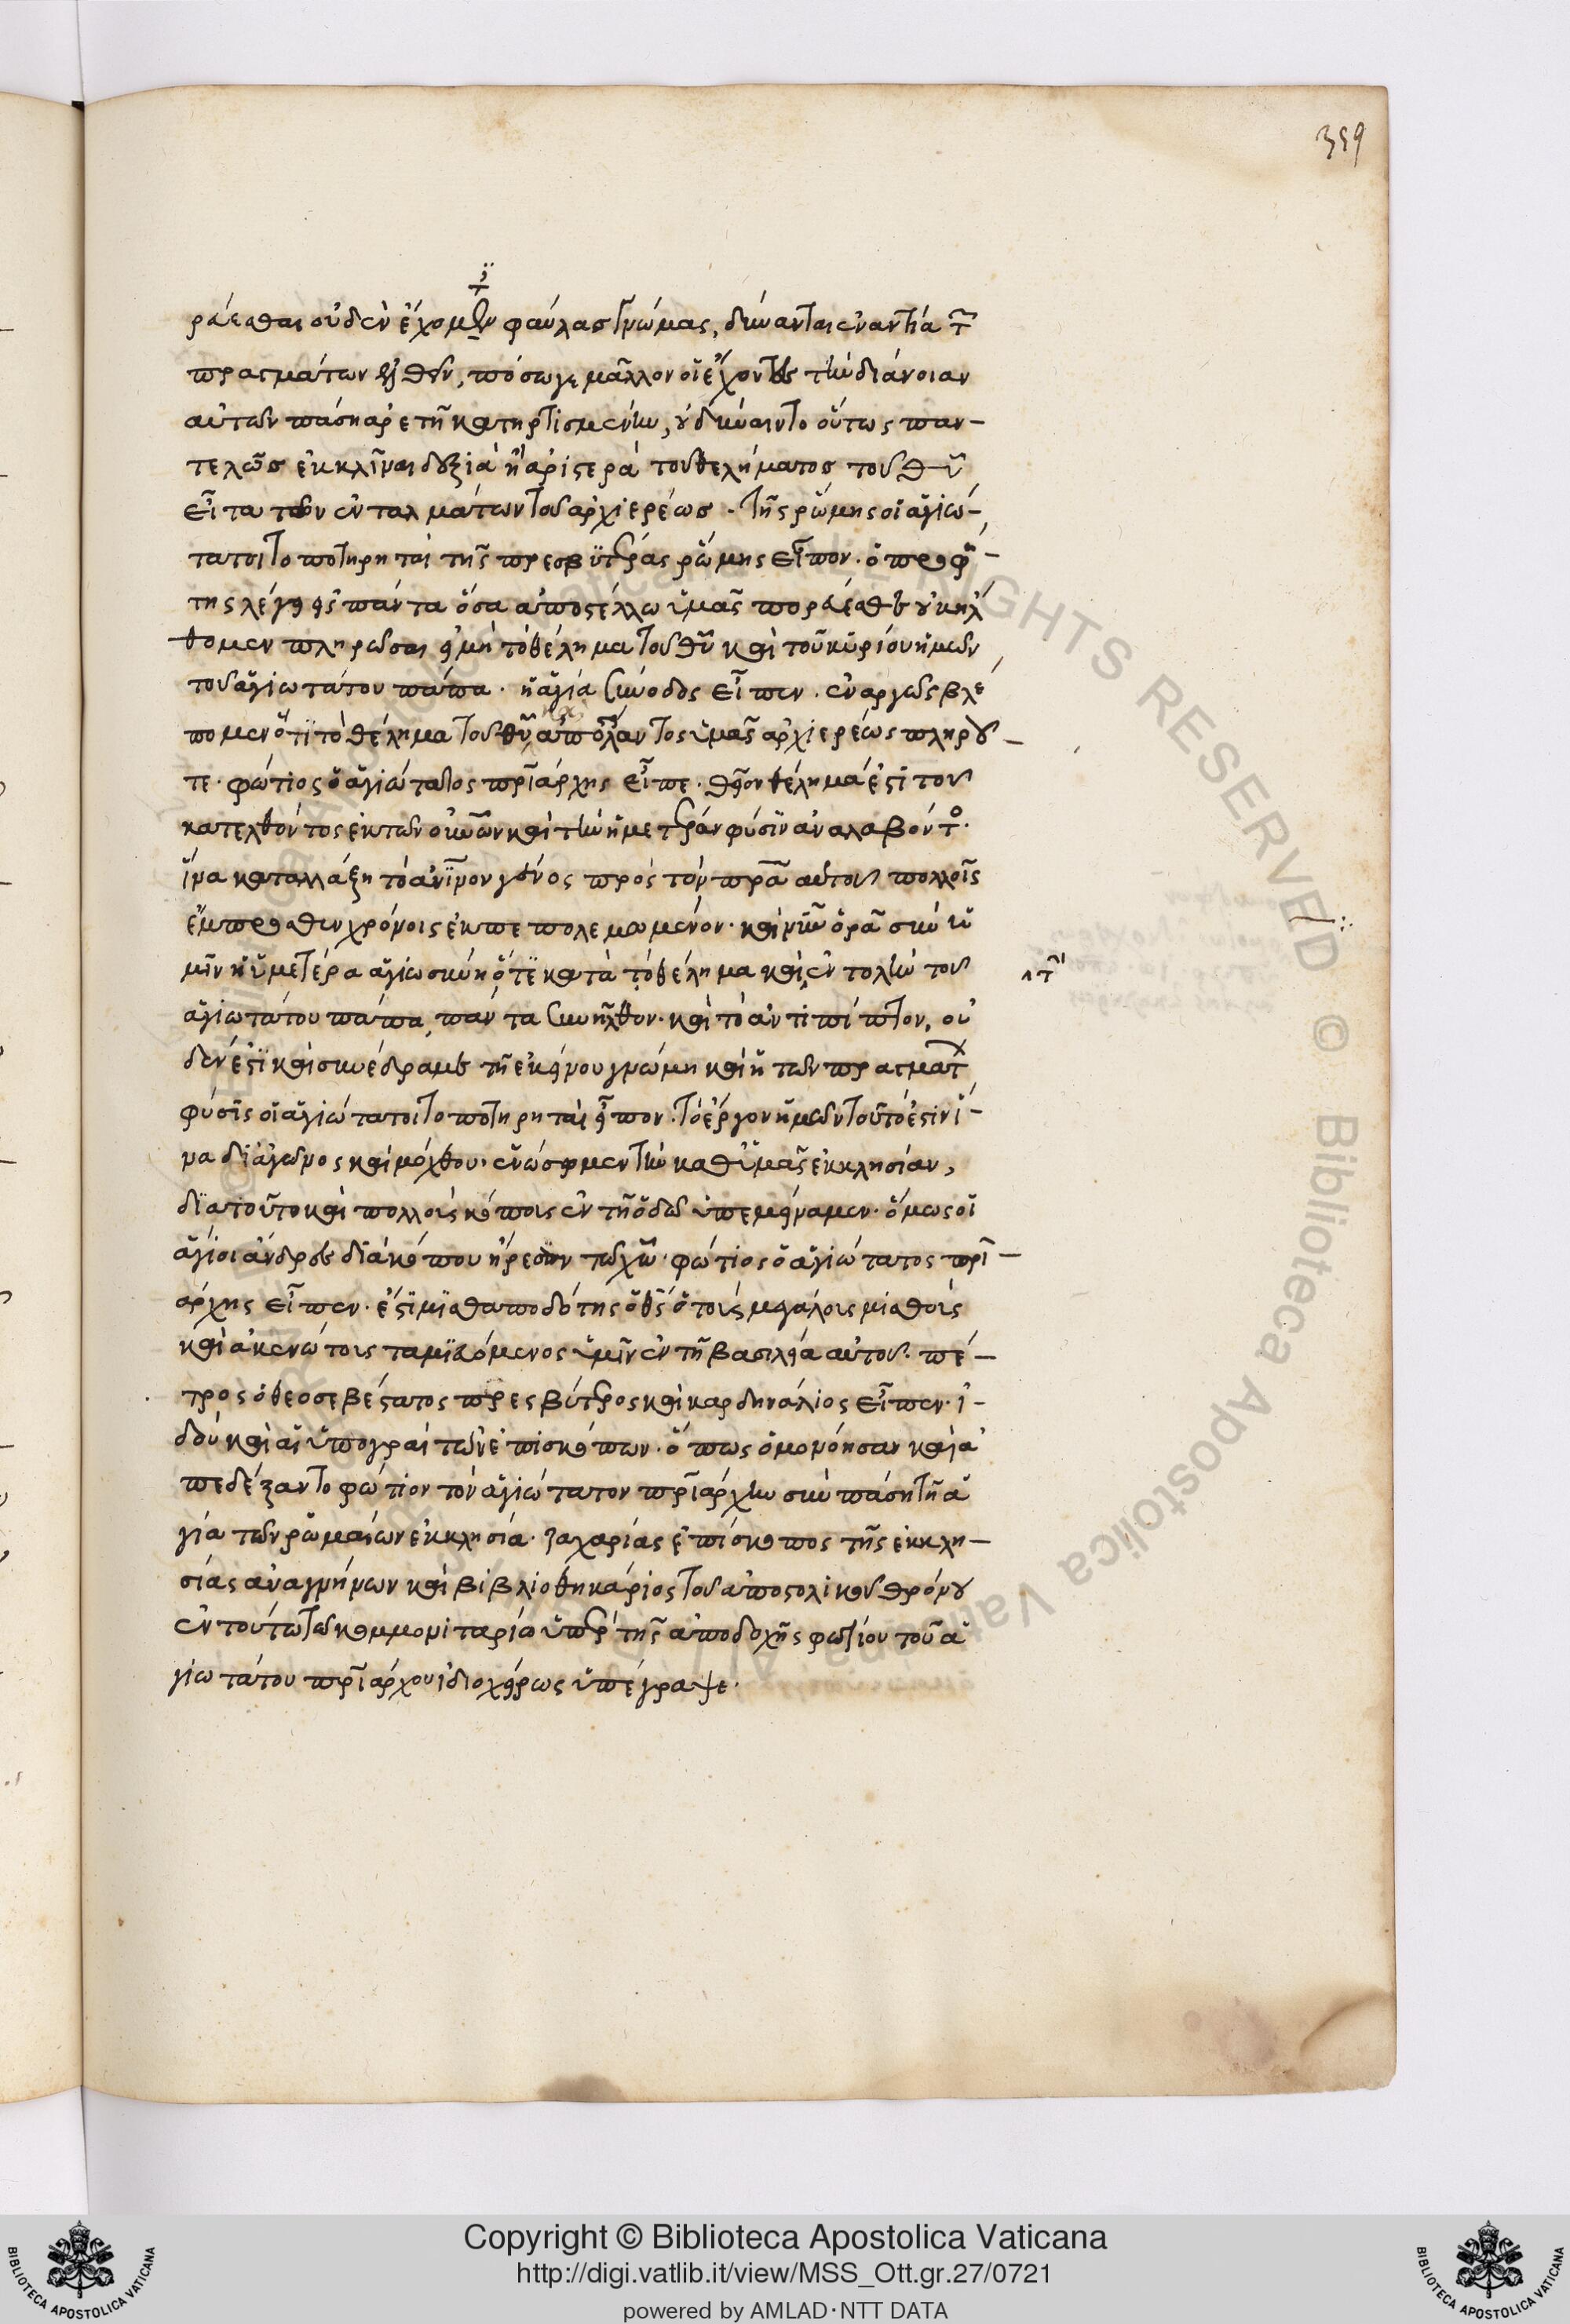 359
ράεσθαι οὐδὲν ἐχομεν φαύλας γνώμας, δύνανται ἐναντία τ̃
πραγμάτων ἐλθεῖν, πόσωγε μᾶλλον οἱ ἔχοντες τὴν διάνοιαν
αὐτῶν πάση ἀρετῆ κατηρτισμένην, οὐ δύναιντο οὕτως παν-
τελῶς ἐκκλῖναι δεξιὰ ἢ ἀριστερὰ τοῦ θελήματος τοῦ θῦ
εἶτα τῶν ἐνταλμάτων τοῦ ἀρχιερέως. τῆς ῥώμης οἱ ἁγιώ-
τατοι τοποτηρηταὶ τῆς πρεσβυτέρας ῥώμης εἶπον. ὁ προφή-
της λέγει πάντα ὅσα ἀποστέλλω ὑμᾶς πορεύεσθε οὐκ ἤλ
θομεν πληρῶσαι εἰ μὴ τὸ θέλημα τοῦ θῦ καὶ τοῦ κυρίου ἡμῶν
τοῦ ἁγιωτάτου πάπα. ἡ ἁγία σύνοδος εἶπεν. ἐναργῶς βλέ
πομεν ὅτι τὸ θέλημα τοῦ θῦ ὑμᾶς ἀρχιερέως πληροῦ-
τε. φώτιος ὁ ἁγιώτατος πριάρχης εἶπε. θεῖον θέλημά ἐστι τοῦ
κατελθόντος ἐκ τῶν οὐνῶν καὶ τὴν ἡμετέραν φύσιν ἀναλαβόντο.
ἵνα καταλλάξη τὸ ἀνινον γένος πρὸς τὸν πρα αὐτοῦ πολλοῖς
ἔμπροσθεν χρόνοις ἐκπεπολεμωμένον. καὶ νῦν ὁρᾶ σὺν ὑ
μῖν ἡ ὑμετέρα ἁγιωσύνη ὅτι κατὰ τὸ θέλημα καὶ ἐντολὴν τοῦ
ἁγιωτάτου πάπα, πάντα συνῆλθον. καὶ τὸ ἀντιπίπτον, οὐ
δέν ἐστι καὶ συνέδραμε τῆ ἐκείνου γνώμη καὶ ἡ τῶν πραγματ
φύσις οἱ ἁγιώτατοι τοποτηρηταὶ εἶπον. τὸ ἔργον ἡμῶν τοῦτό ἐστιν ἵ-
να δι ἀγῶνος καὶ μόχθου ἑνώσωμεν τὴν καθ ὑμᾶς ἐκκλησίαν,
διατοῦτο καὶ πολλοὺς κόποις ἐν τῆ ὁδῶ ὑπεμείναμεν. ὅμως οἱ
ἅγιοι ἄνδρες διὰ κόπου ἤρεσαν τῶ χω. φώτιος ὁ ἁγιώτατος πρι-
άρχης εἶπεν. ἔστι μισθαποδότης ὁ θς ὁ τοὺς μεγάλους μισθοὺς
καὶ ἀκενώτους ταμιευόμενος ὑμῖν ἐν τῆ βασιλεία αὐτοῦ. πέ-
τρος ὁ θεοσεβέστατος πρεσβύτερος καὶ καρδηνάλιος εἶπεν. ἰ-
δοὺ καὶ αἱ ὑπογραὶ τῶν ἐπισκόπων. ὅπως ὁμονόησαν καὶ ἀ
πεδέξαντο φώτιον τὸν ἁγιώτατον πριάρχην σὺν πάση τῆ ἁ
γία τῶν ῥωμαίων ἐκκλησία. ζαχαρίας ἐπίσκοπος τῆς ἐκκλη-
σίας ἀναγνήνων καὶ βιβλιοθηκάριος τοῦ ἀποστολικοῦ θρόνου
ἐν τούτω τῶ κομμονιταρίω ὑπὲρ τῆς ἀποδοχῆς φωτίου τοῦ ἁ
γιωτάτου πριάρχου ἰδιοχείρως ὑπέγραψε.
Copyright © Biblioteca Apostolica Vaticana
http://digi.vatlib.it/view/MSS_Ott.gr.27/0721
powered by AMLAD·NTT DATA